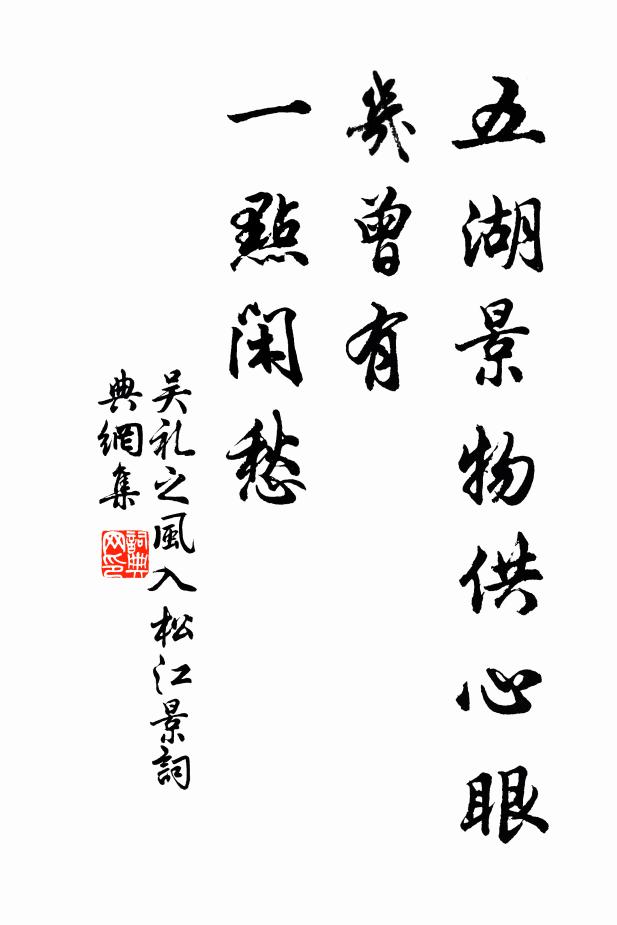 五湖景物供心眼
幾曾有
一點閑愁
吳礼之風入松江景詞
典網集
詞典
网印